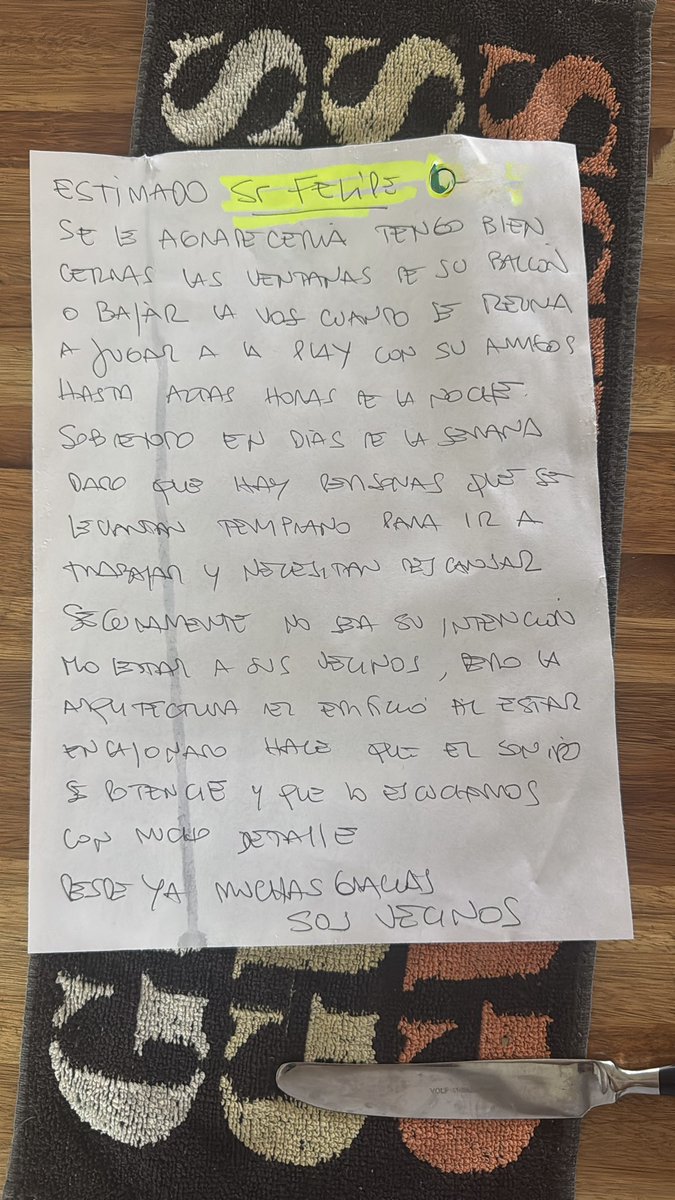 ESTIMADO Sr FELIPE
SE LE AGRADECERIA TENGO BIEN
CERRAS LAS VENTANAS DE SU BALCÓN
O BAJAR LA VOS CUANDO SE REUNA
A JUGAR A LA PLAY CON SU AMIGOS
HASTA ALTAS HORAS DE LA NOCHE.
SOBRETODO EN DIAS DE LA SEMANA
DADO QUE HAY PERSONAS QUE SE
LEVANTAN TEMPRANO PARA IR A
TRABAJAR Y NECESITAN DESCANSAR
SEGURAMENTE NO SEA SU INTENCION
MOLESTAR A SUS VECINOS, PERO LA
ARQUITECTURA DEL EDIFICIO AL ESTAR
ENCAJONADO HACE QUE EL SONIDO
SE POTENCIE Y QUE LO ESCUCHAMOS
CON MUCHO DETALLE
DESDE YA MUCHAS GRACIAS
SUS VECINOS